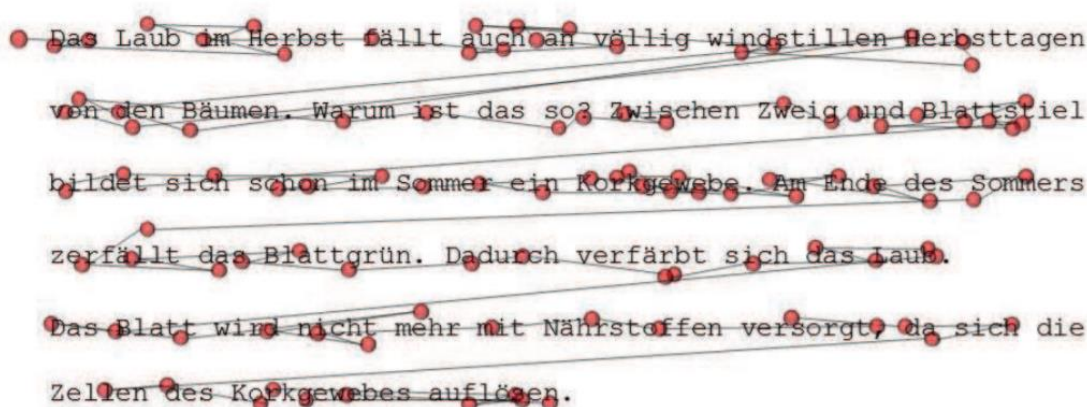 Das Laub im Herbst fällt auch an völlig windstillen Herbsttagen
von den Bäumen. Warum ist das so? Zwischen Zweig und Blattstiel
bildet sich schon im Sommer ein Korkgewebe. Am Ende des Sommers
zerfällt das Blattgrün. Dadurch verfärbt sich das Laub.
Das Blatt wird nicht mehr mit Nährstoffen versorgt, da sich die
Zellen des Korkgewebes auflösen.